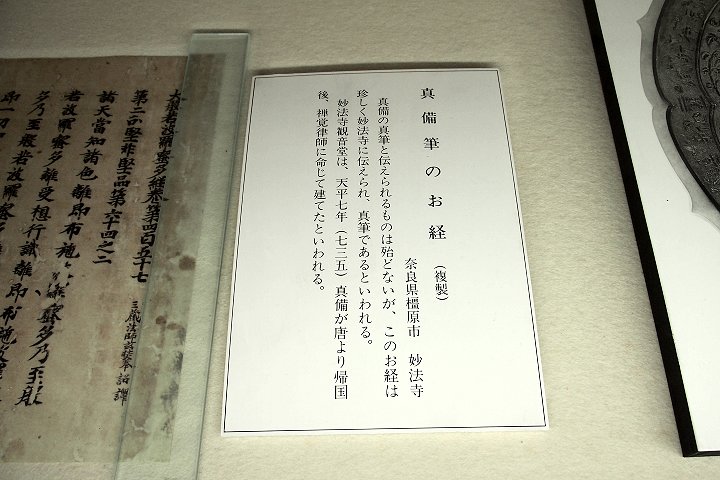 真備筆のお経(複製)
奈良県橿原市 妙法寺
真備の真筆と伝えられるものは殆どないが、このお経は
珍しく妙法寺に伝えられ、真筆であるといわれる。
妙法寺観音堂は、天平七年(七三五)真備が唐より帰国
後、禅覚律師に命じて建てたといわれる。
大般若波羅蜜多経巻第四百五十七
第二分堅非堅品第六十四之二
三蔵法師玄奘奉 詔譯
諸天當知諸色離即布施
若波羅蜜多離受想行識離即布施
多乃至般若波羅蜜多
即一切